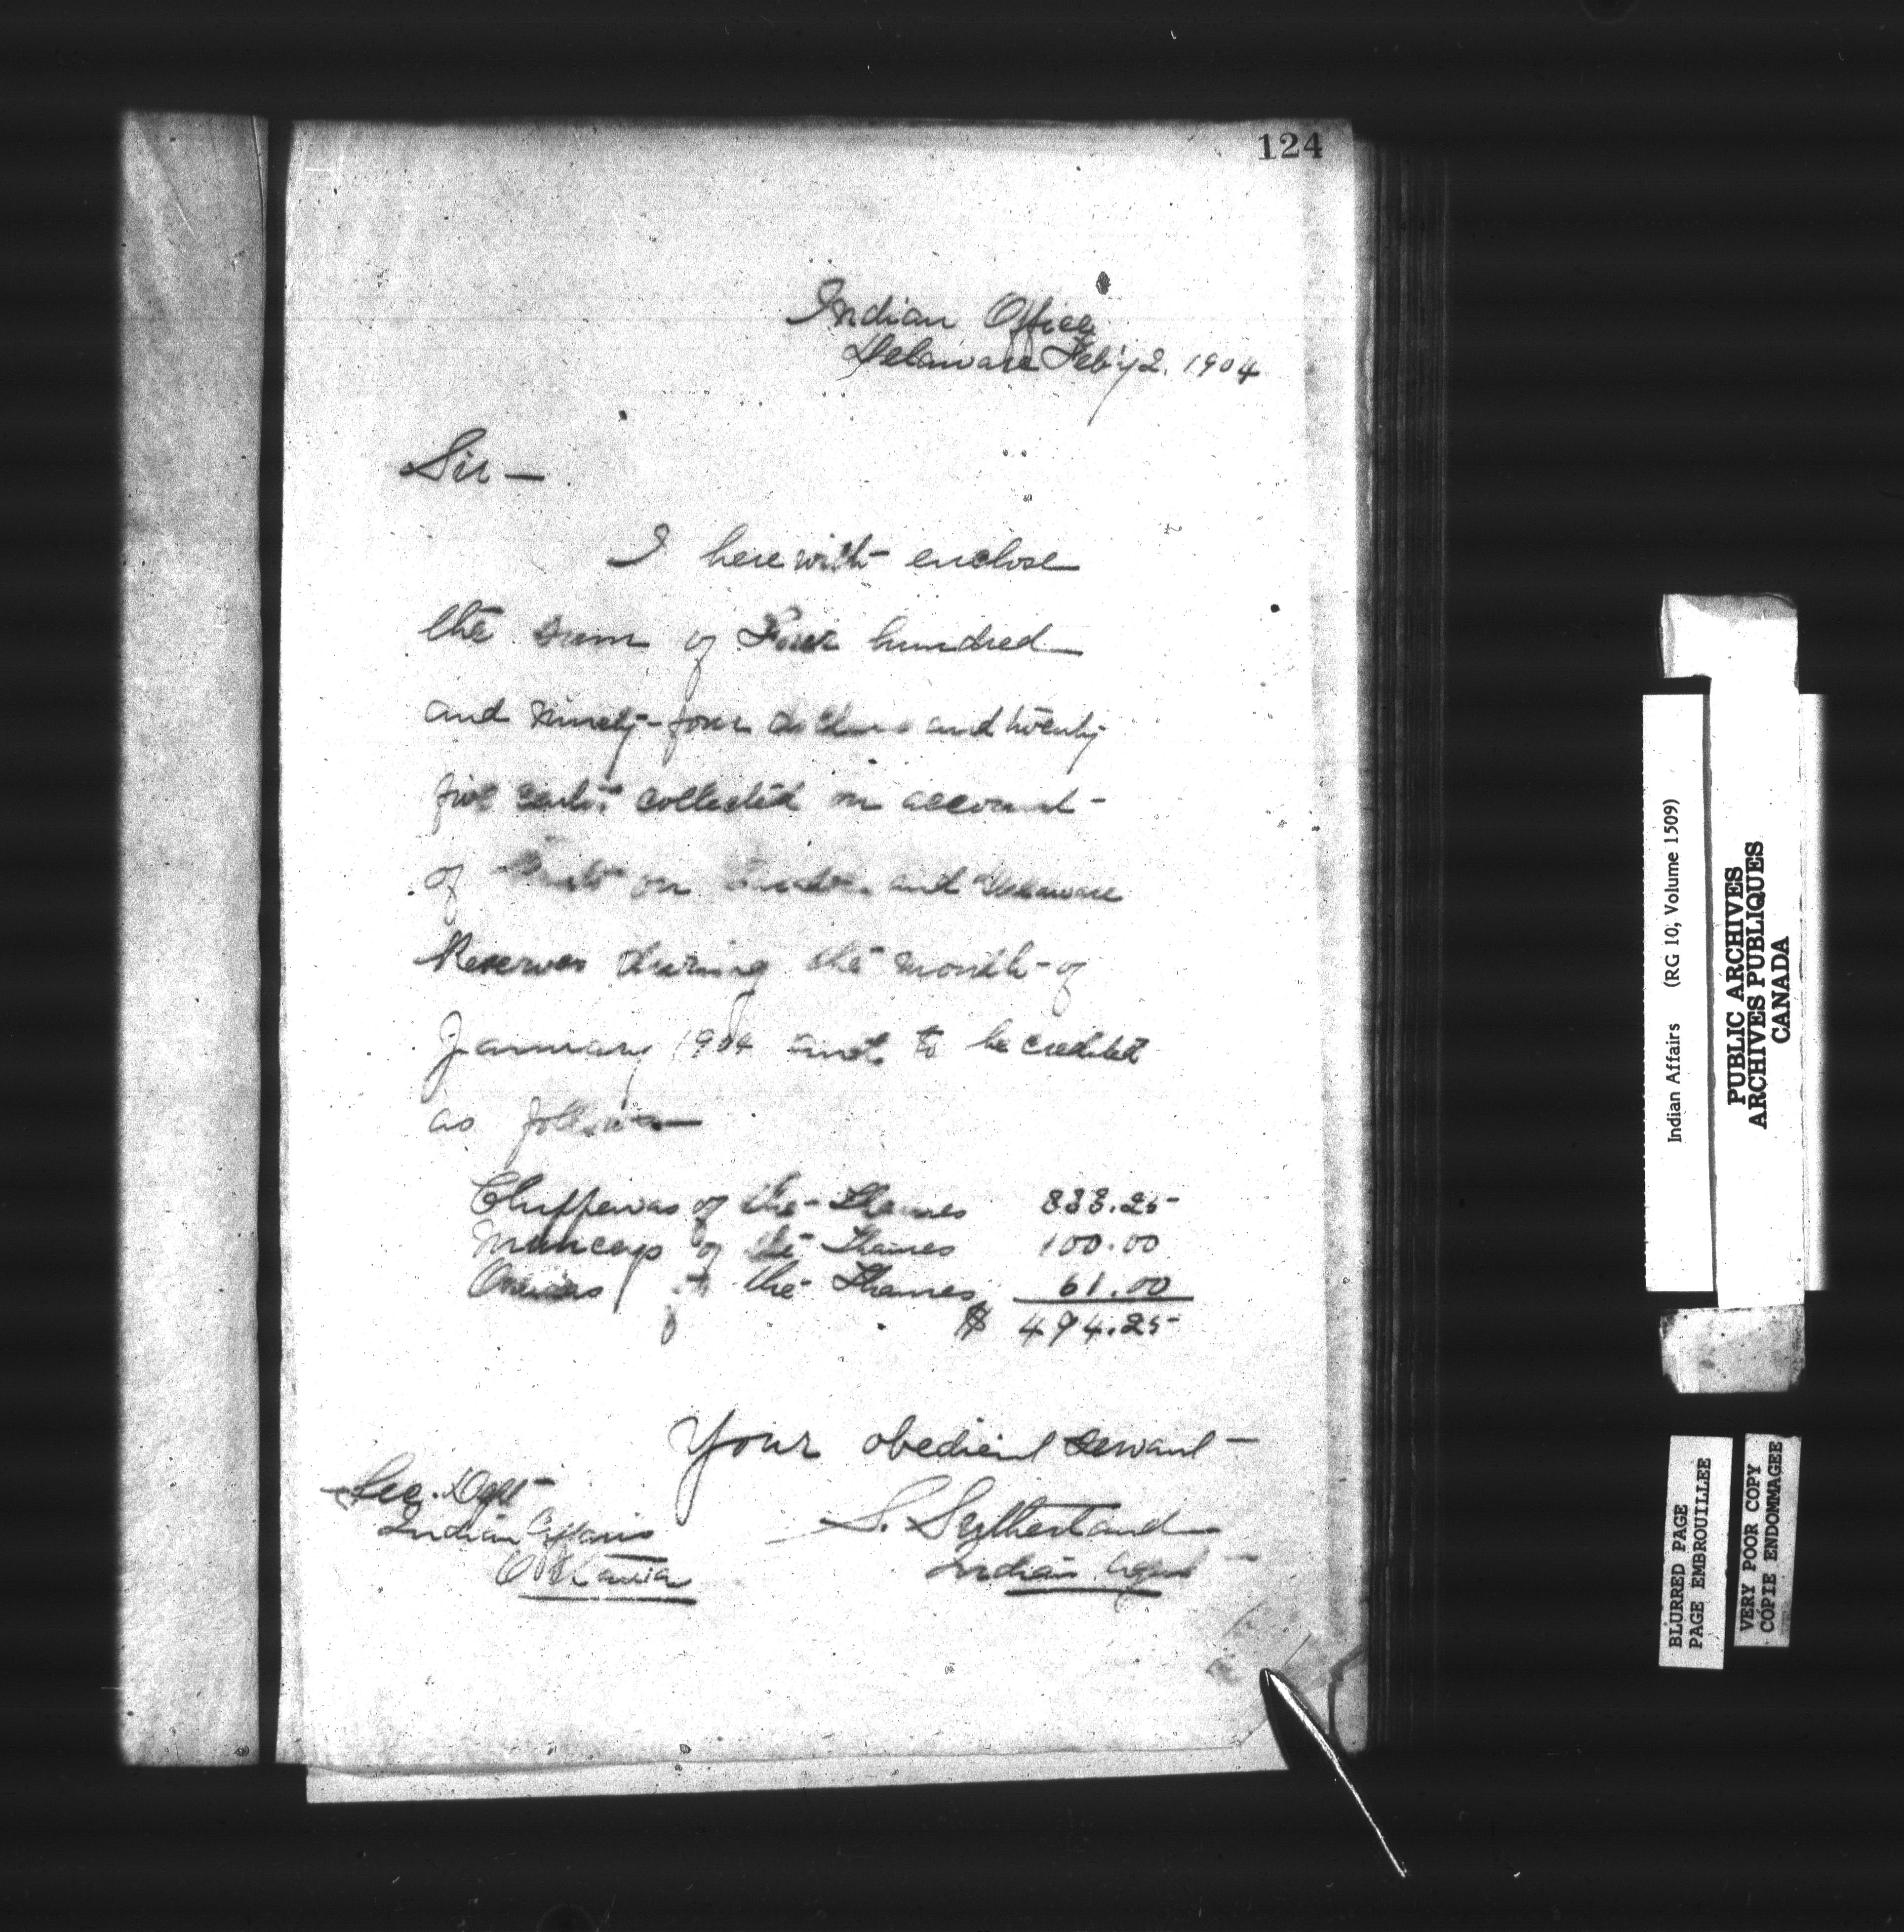 124
Indian Office
Delaware Feb'y 2. 1904
Sir —
I herewith enclose
the sum of Four hundred
and ninety-four dollars and twenty
five cents collected on account
of on and Delaware
Reserves during the month of
January 1904 and to be credited
as follows —
Chippewas of the Thames 333.25
Munceys of the Thames 100.00
Oneidas of the Thames 61.00
$ 494.25
Your obedient servant
S. Sutherland
Indian Agent
Sec. Dept
Indian Affairs
Ottawa
Indian Affairs (RG 10, Volume 1509)
PUBLIC ARCHIVES
ARCHIVES PUBLIQUES
CANADA
BLURRED PAGE
PAGE EMBROUILLEE
VERY POOR COPY
COPIE ENDOMMAGEE